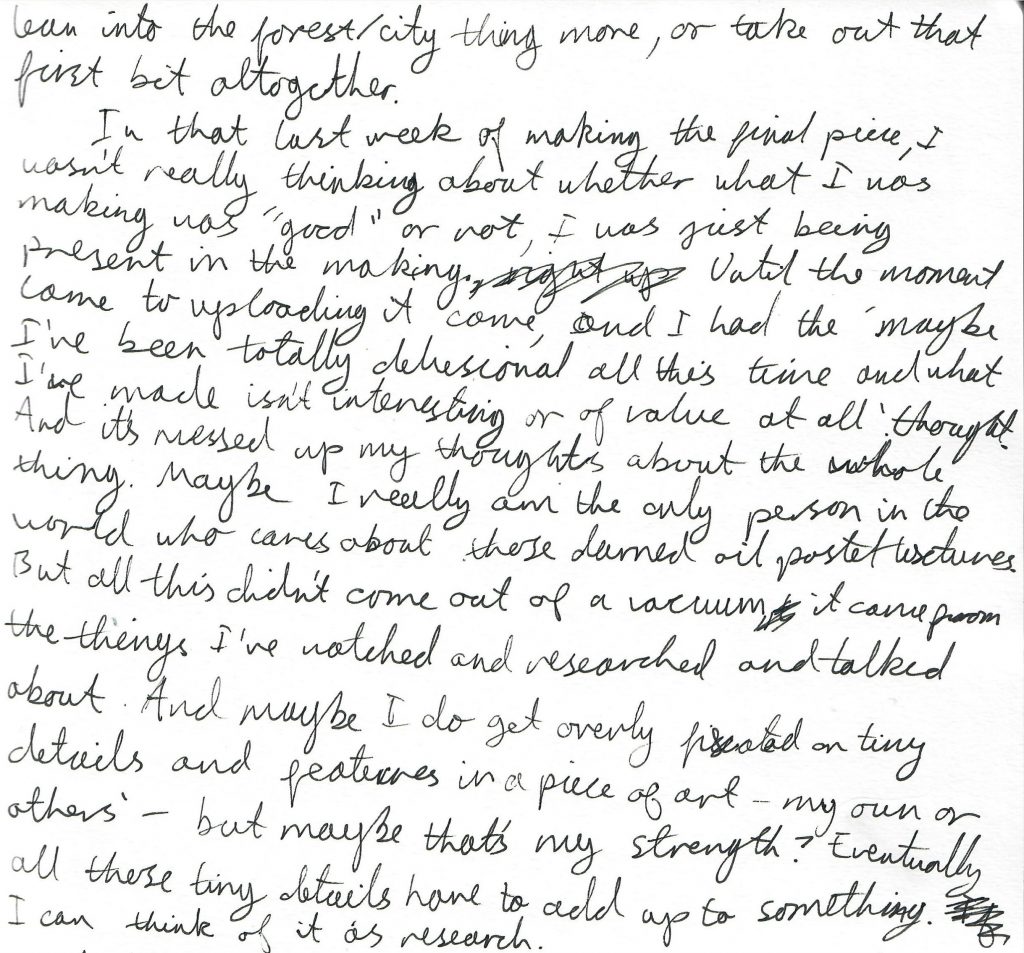 lean into the forest/city thing more, or take out that
first bit altogether.
In that last week of making the final piece, I
wasn't really thinking about whether what I was
making was "good" or not, I was just being
present in the making. right up Until the moment
came to uploading it came, and I had the 'maybe
I've been totally delusional all this time and what
I've made isn't interesting or of value at all' thought.
And it's messed up my thoughts about the whole
thing. Maybe I really am the only person in the
world who cares about those darned oil pastel textures.
But all this didn't come out of a vacuum, it came from
the things I've watched and researched and talked
about. And maybe I do get overly fixated on tiny
details and features in a piece of art – my own or
others' – but maybe that's my strength? Eventually
all these tiny details have to add up to something.
I can think of it as research.